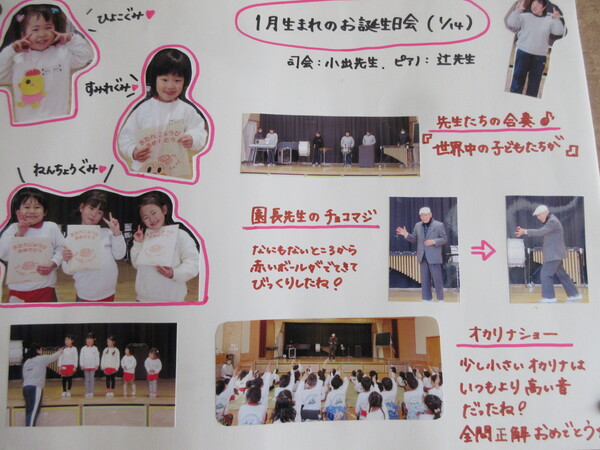 ひよこぐみ♥
1月生まれのお誕生日会(1/14)
司会:小出先生、ピアノ:辻先生
すみれぐみ♥
ねんちょうぐみ♥
先生たちの合奏♪
『世界中の子どもたちが』
園長先生のチョコマジ
なにもないところから
赤いボールがでてきて
びっくりしたね!
オカリナショー
少し小さいオカリナは
いつもより高い音
だったね!
全問正解おめでとう